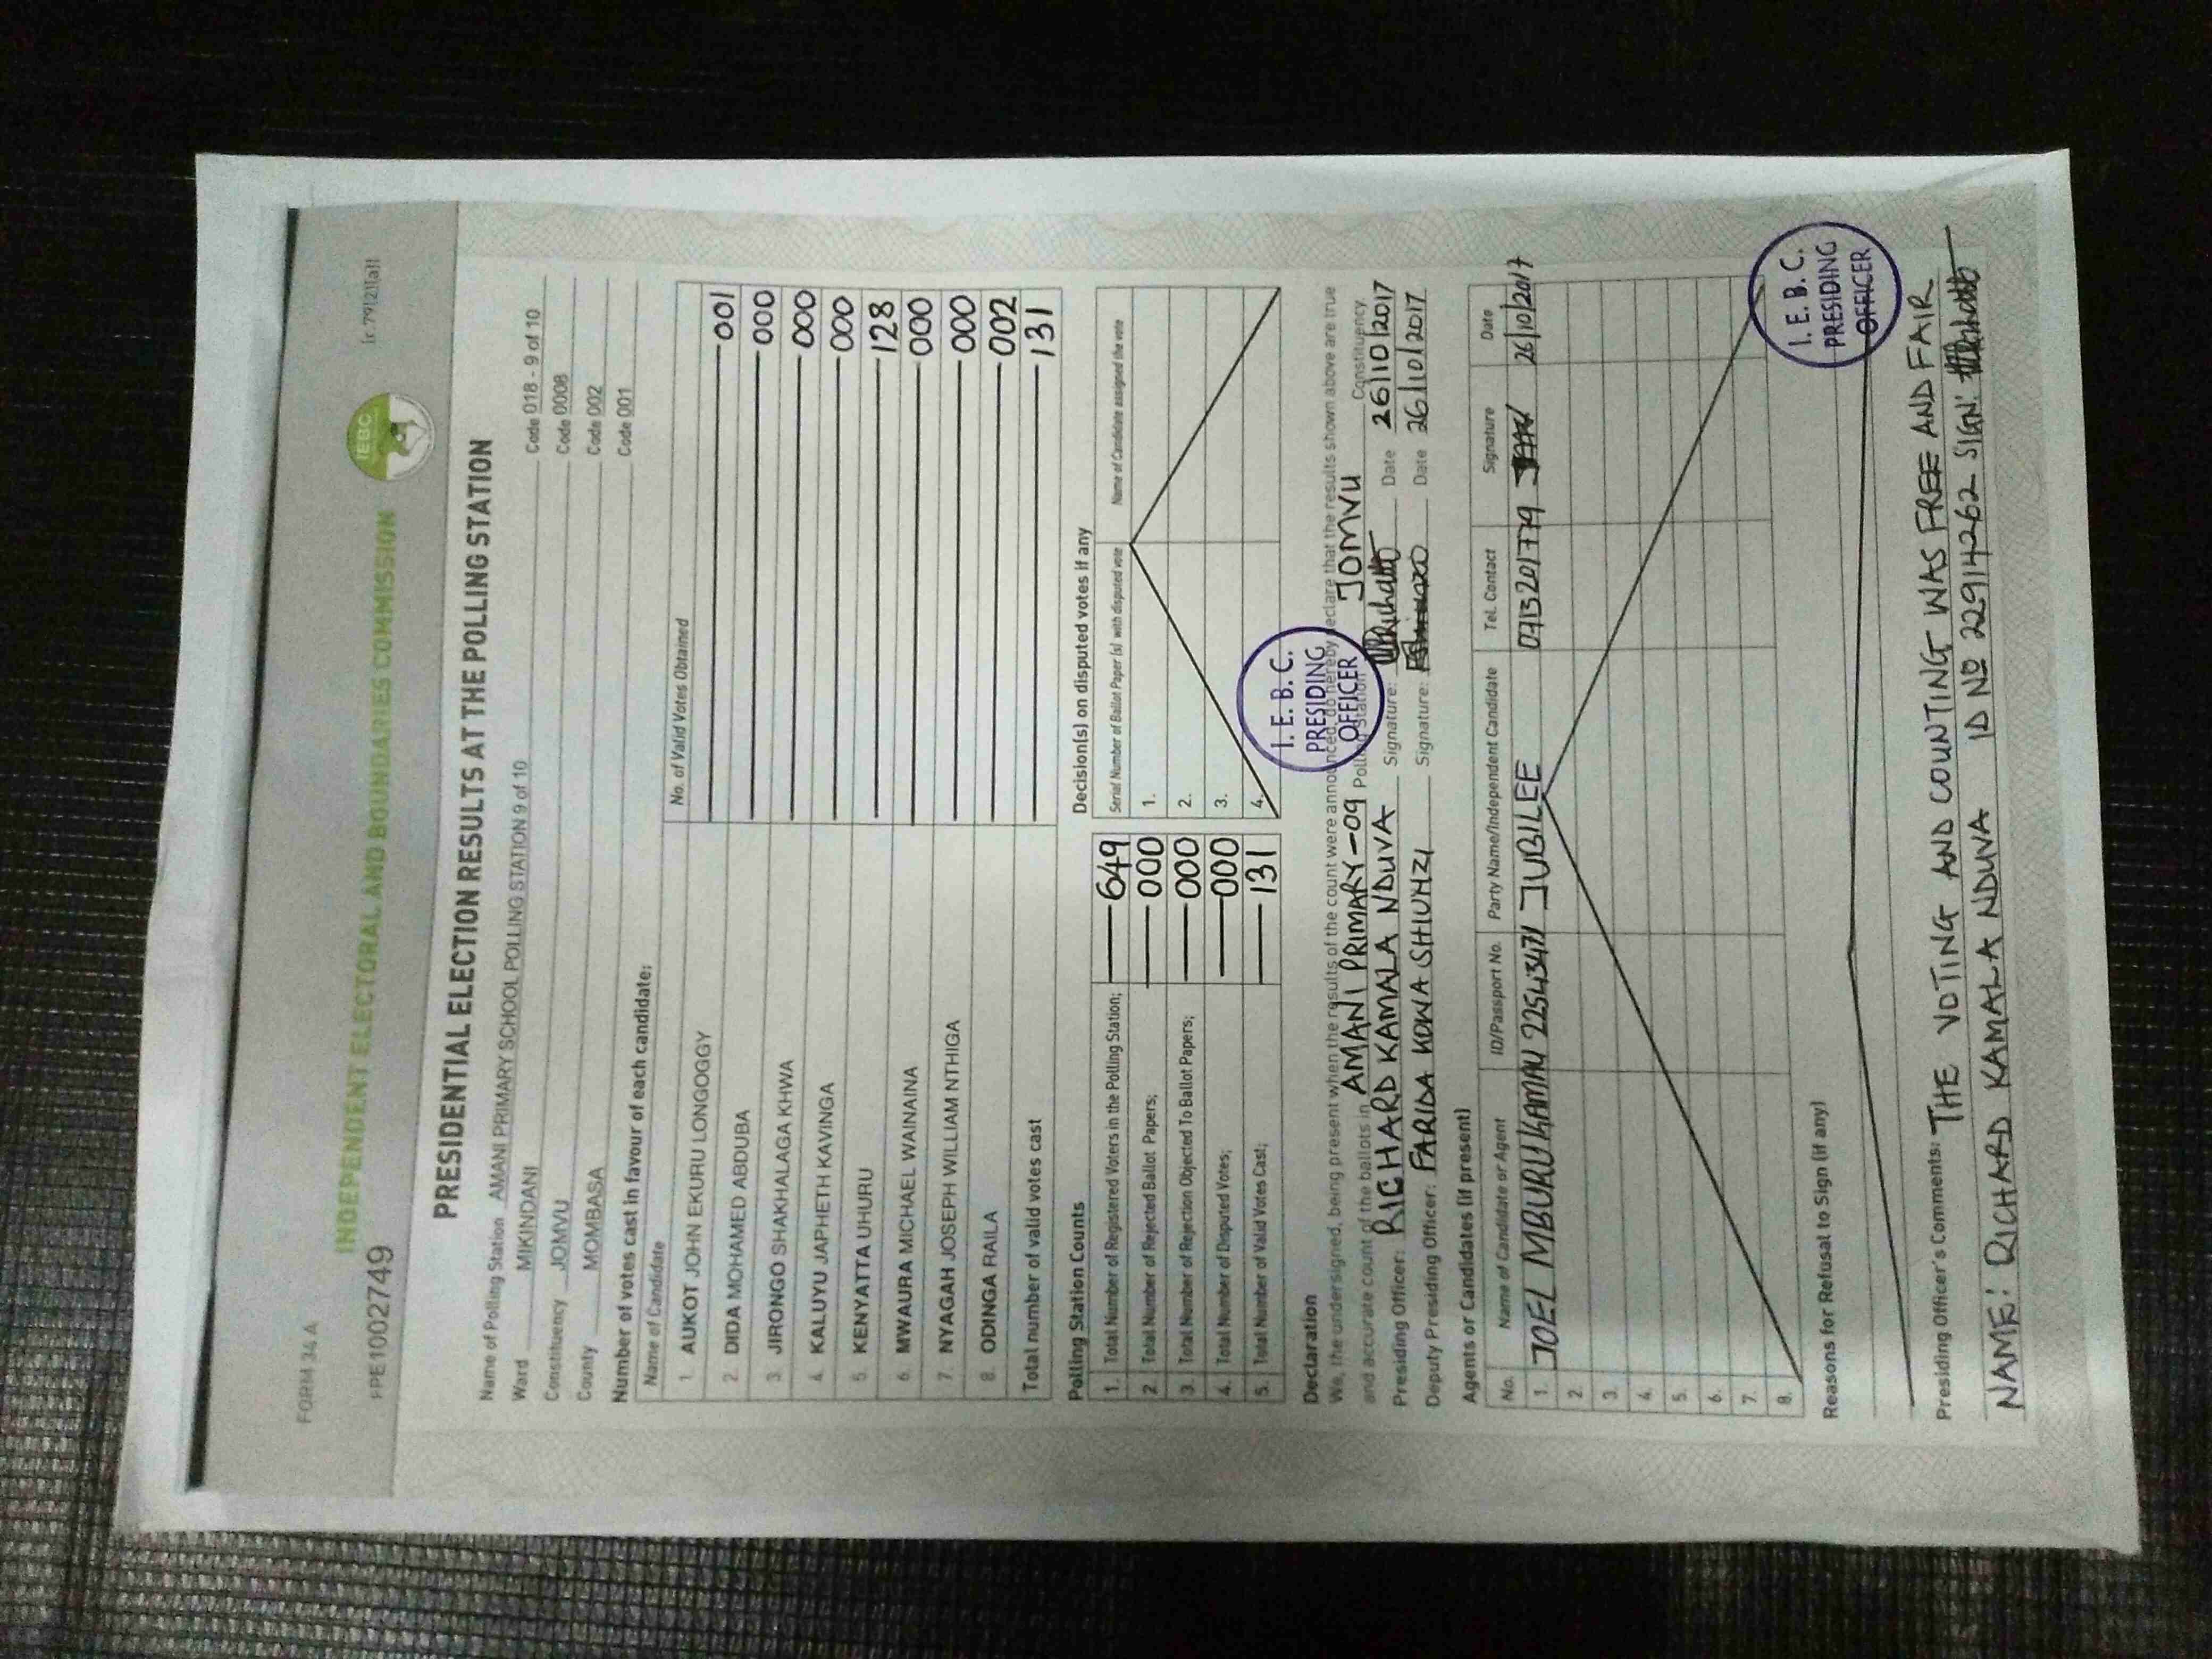 FORM 34 A
(r.79(2)(a))
INDEPENDENT ELECTORAL AND BOUNDARIES COMMISSION
IEBC
FPE1002749
PRESIDENTIAL ELECTION RESULTS AT THE POLLING STATION
Name of Polling Station AMANI PRIMARY SCHOOL POLLING STATION 9 of 10 Code 018 - 9 of 10
Ward MIKINDANI Code 0008
Constituency JOMVU Code 002
County MOMBASA Code 001
Number of votes cast in favour of each candidate:
Name of Candidate No. of Valid Votes Obtained
1. AUKOT JOHN EKURU LONGOGGY 001
2. DIDA MOHAMED ABDUBA 000
3. JIRONGO SHAKHALAGA KHWA 000
4. KALUYU JAPHETH KAVINGA 000
5. KENYATTA UHURU 128
6. MWAURA MICHAEL WAINAINA 000
7. NYAGAH JOSEPH WILLIAM NTHIGA 000
8. ODINGA RAILA 002
Total number of valid votes cast 131
Polling Station Counts
1. Total Number of Registered Voters in the Polling Station; 649
2. Total Number of Rejected Ballot Papers; 000
3. Total Number of Rejection Objected To Ballot Papers; 000
4. Total Number of Disputed Votes; 000
5. Total Number of Valid Votes Cast; 131
Decision(s) on disputed votes if any
Serial Number of Ballot Paper (s) with disputed vote Name of Candidate assigned the vote
1.
2.
3.
4.
I.E.B.C.
PRESIDING
OFFICER
Declaration
We, the undersigned, being present when the results of the count were announced, do hereby declare that the results shown above are true
and accurate count of the ballots in AMANI PRIMARY-09 Polling Station JOMVU Constituency
Presiding Officer: RICHARD KAMALA NDUVA Signature: Date 26/10/2017
Deputy Presiding Officer: FARIDA KOWA SHIUHZI Signature: Date 26/10/2017
Agents or Candidates (if present)
No. Name of Candidate or Agent ID/Passport No. Party Name/Independent Candidate Tel. Contact Signature Date
1. JOEL MBURU KAMAU 22543471 JUBILEE 0713201779 26/10/2017
2.
3.
4.
5.
6.
7.
8.
I.E.B.C.
PRESIDING
OFFICER
Reasons for Refusal to Sign (if any)
Presiding Officer's Comments: THE VOTING AND COUNTING WAS FREE AND FAIR
NAME: RICHARD KAMALA NDUVA ID NO 22914262 SIGN: